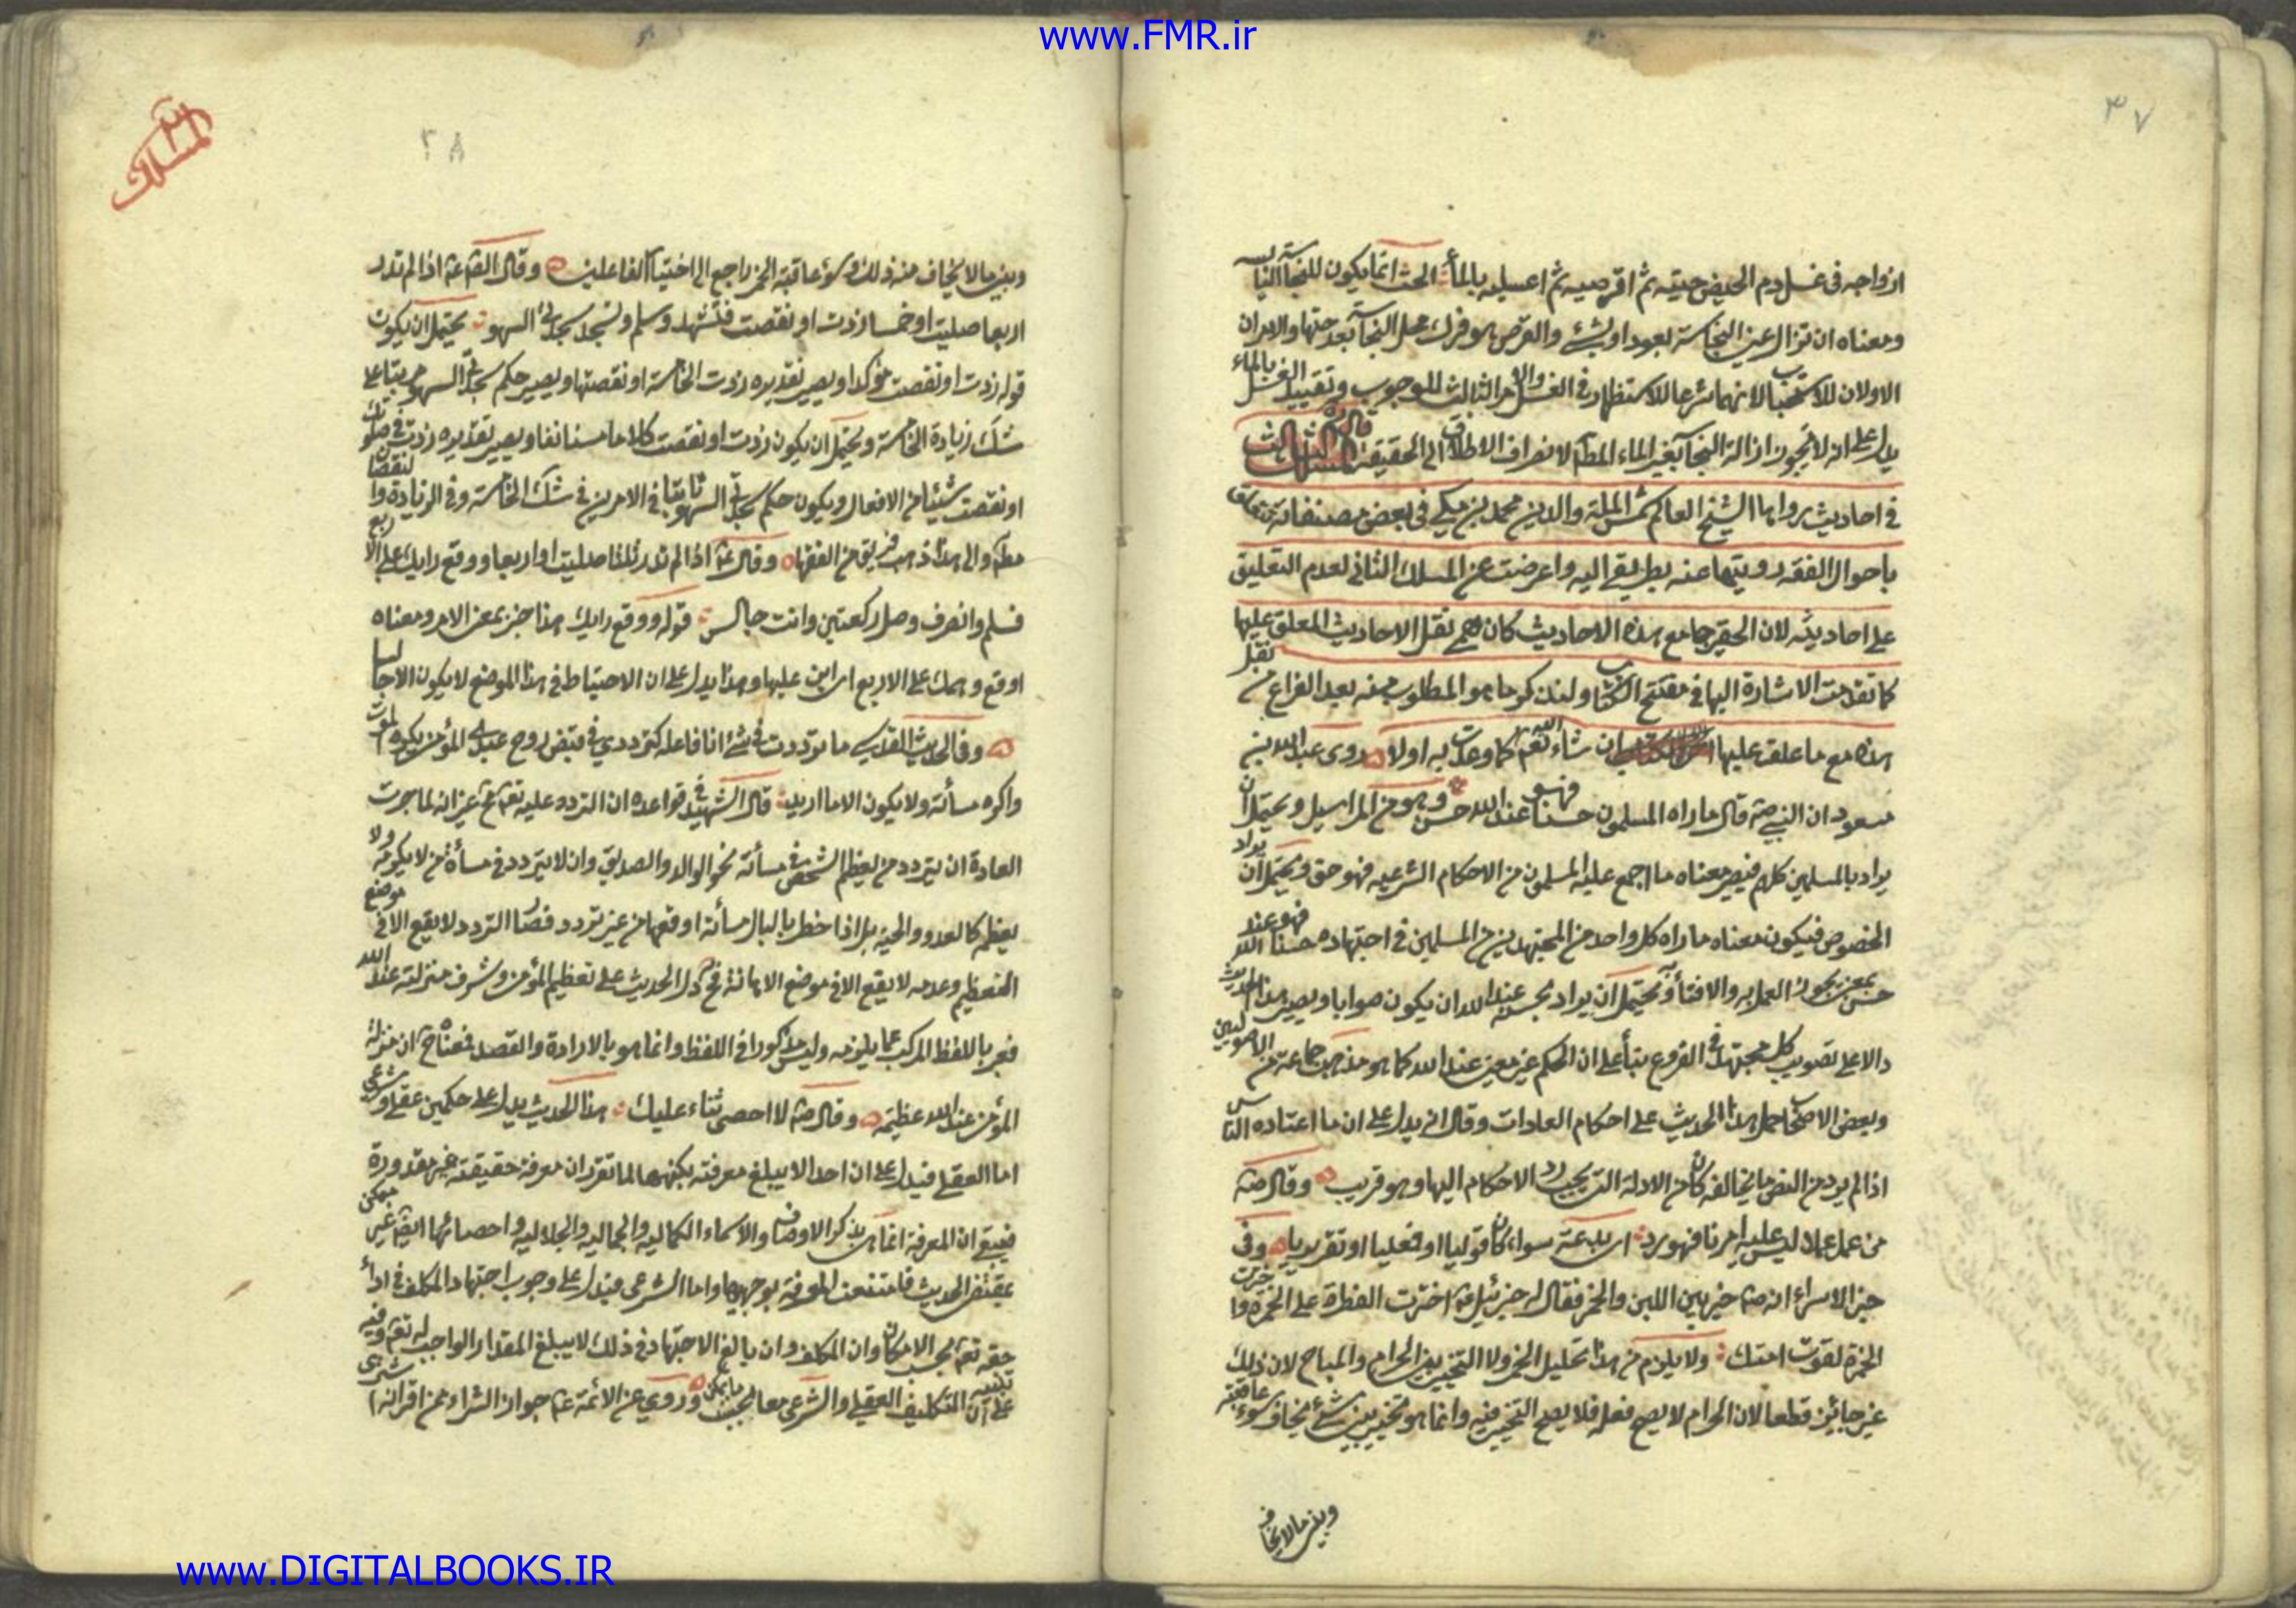 www.FMR.ir
٣٧
ازواجه فى غسل دم الحيض حتيه ثم اقرصيه ثم اغسليه بالماء الحت انما يكون للنجاسة اليابسه
ومعناه ان تزال عين النجاسة بعود او بشئ والقرص هو فرك محل النجاسة بعد حتها والامران
الاولان للاستحباب لانهما شرعا للاستظهار فى الغسل والامر الثالث للوجوب وتقييد الغسل بالماء
يدل على انه لا يجوز ازالة النجاسة بغير الماء المطلق لانصراف الاطلاق الى الحقيقة المسلك الثالث
فى احاديث رواها الشيخ العالم شمس الملة والدين محمد بن مكى فى بعض مصنفاته تتعلق
باحوال الفقه رويتها عنه بطريقى اليه واعرضت عن المسلك الثانى لعدم التعليق
على احاديثه لان الحقير جامع هذه الاحاديث كان همه نقل الاحاديث المعلق عليها
كما تقدمت الاشارة اليها فى مفتتح الكتاب ولنذكر ما هو المطلوب منه بعد الفراغ من نقل
هذه مع ما علق عليها ان شاء الله تعالى كما وعدت به اولا روى عبد الله بن
مسعود ان النبى صم قال ما راه المسلمون حسنا فهو عند الله حسن وهو من المراسيل ويحتمل ان
يراد بالمسلمين كلهم فيصير معناه ما اجمع عليه المسلمون من الاحكام الشرعيه فهو حق ويحتمل ان يراد
الخصوص فيكون معناه ما راه كل واحد من المجتهدين من المسلمين فى اجتهاده حسنا فهو عند الله
حسن بمعنى يجوز العمل به والافتاء به ويحتمل ان يراد بحسنه عند الله ان يكون صوابا ويصير هذا الحديث
دالا على تصويب كل مجتهد فى الفروع بناء على ان الحكم غير معين عند الله كما هو مذهب جماعة من الاصوليين
وبعض الاصحاب حمل هذا الحديث على احكام العادات وقال انه يدل على ان ما اعتاده الناس
اذا لم يرد من النص ما يخالفه كان من الادلة التى يجب رد الاحكام اليها وهو قريب وقال صم
من عمل عملا ليس عليه امرنا فهو رد اى بدعة سواء كان قوليا او فعليا او تقريريا وفى
خبر الاسراء انه صم خير بين اللبن والخمر فقال له جبرئيل عم اخترت الفطرة على الخمرة ولو اخترت
الخمرة لغوت امتك ولا يلزم من هذا تحليل الخمر ولا التخيير بين الحرام والمباح لان ذلك
غير جائز قطعا لان الحرام لا يصح فعله فلا يصح التخيير فيه وانما هو تخيير بين شئ يخاف سوء عاقبته
وبين ما لا يخاف
المسلك ٣
٣٨
وبين ما لا يخاف منه ذلك وسوء عاقبة الخمر راجع الى اختيار الفاعلين وقال الصم عم اذا لم تدر
اربعا صليت او خمسا زدت او نقصت فتشهد وسلم وتسجد سجدتى السهو يحتمل ان يكون
قوله زدت او نقصت مؤكدا ويصير تقديره زدت الخامسة او نقصتها ويصير حكم سجدتى السهو مرتبا على
شك زيادة الخامسة ويحتمل ان يكون زدت او نقصت كلاما مستانفا ويصير تقديره زدت فى صلوتك
او نقصت شيئا من الافعال ويكون حكم سجدتى السهو ثابتا فى الامرين فى شك الخامسة وفى الزيادة والنقصان
مطلقا والى هذا ذهب فريق من الفقهاء وقال عم اذا لم تدر ثلثا صليت او اربعا ووقع رايك على الاربع
فسلم وانصرف وصل ركعتين وانت جالس قوله ووقع رايك هذا خبر بمعنى الامر ومعناه
اوقع وهمك على الاربع اى ابن عليها وهذا يدل على ان الاحتياط فى هذا الموضع لا يكون الا جالسا
وفى الحديث القدسى ما ترددت فى شئ انا فاعله كترددى فى قبض روح عبدى المؤمن يكره الموت
واكره مسأته ولا يكون الا ما اريد قال الشهيد فى قواعده ان التردد عليه تعم محم غير انه لما جرت
العادة ان يتردد من يعظم الشخص فى مسأته نحو الوالد والصديق وان لا يتردد فى مسأة من لا يكرمه ولا
يعظمه كالعدو والحية بل اذا خطر بالبال مسأته اوقعها من غير تردد فصار التردد لا يقع الا فى موضع
التعظيم وعدمه لا يقع الا فى موضع الاهانة فح دل الحديث على تعظيم المؤمن وشرف منزلته عند الله
فعبر باللفظ المركب عما يلزمه وليس مذكورا فى اللفظ وانما هو بالارادة والقصد فمعناه ح ان منزلة
المؤمن عند الله عظيمة وقال صم لا احصى ثناء عليك هذا الحديث يدل على حكمين عقلى وشرعى
اما العقلى فيدل على ان احدا لا يبلغ معرفته بكنهها لما تقرر ان معرفة حقيقته غير مقدورة
فبقى ان المعرفة انما هى بذكر الاوصاف والاسماء الكماليه والجماليه والجلاليه واحصائها ايضا غير ممكن
بمقتضى الحديث فامتنعت المعرفة بوجهيها واما الشرعى فيدل على وجوب اجتهاد المكلف فى اداء
حقه تعم بحسب الامكان وان المكلف وان بالغ الاجتهاد فى ذلك لا يبلغ المقدار الواجب له تعم وفيه تنبيه
على ان التكليف العقلى والشرعى معا بحسب ما يمكن وروى عن الائمة عم جواز الشراء
www.DIGITALBOOKS.IR